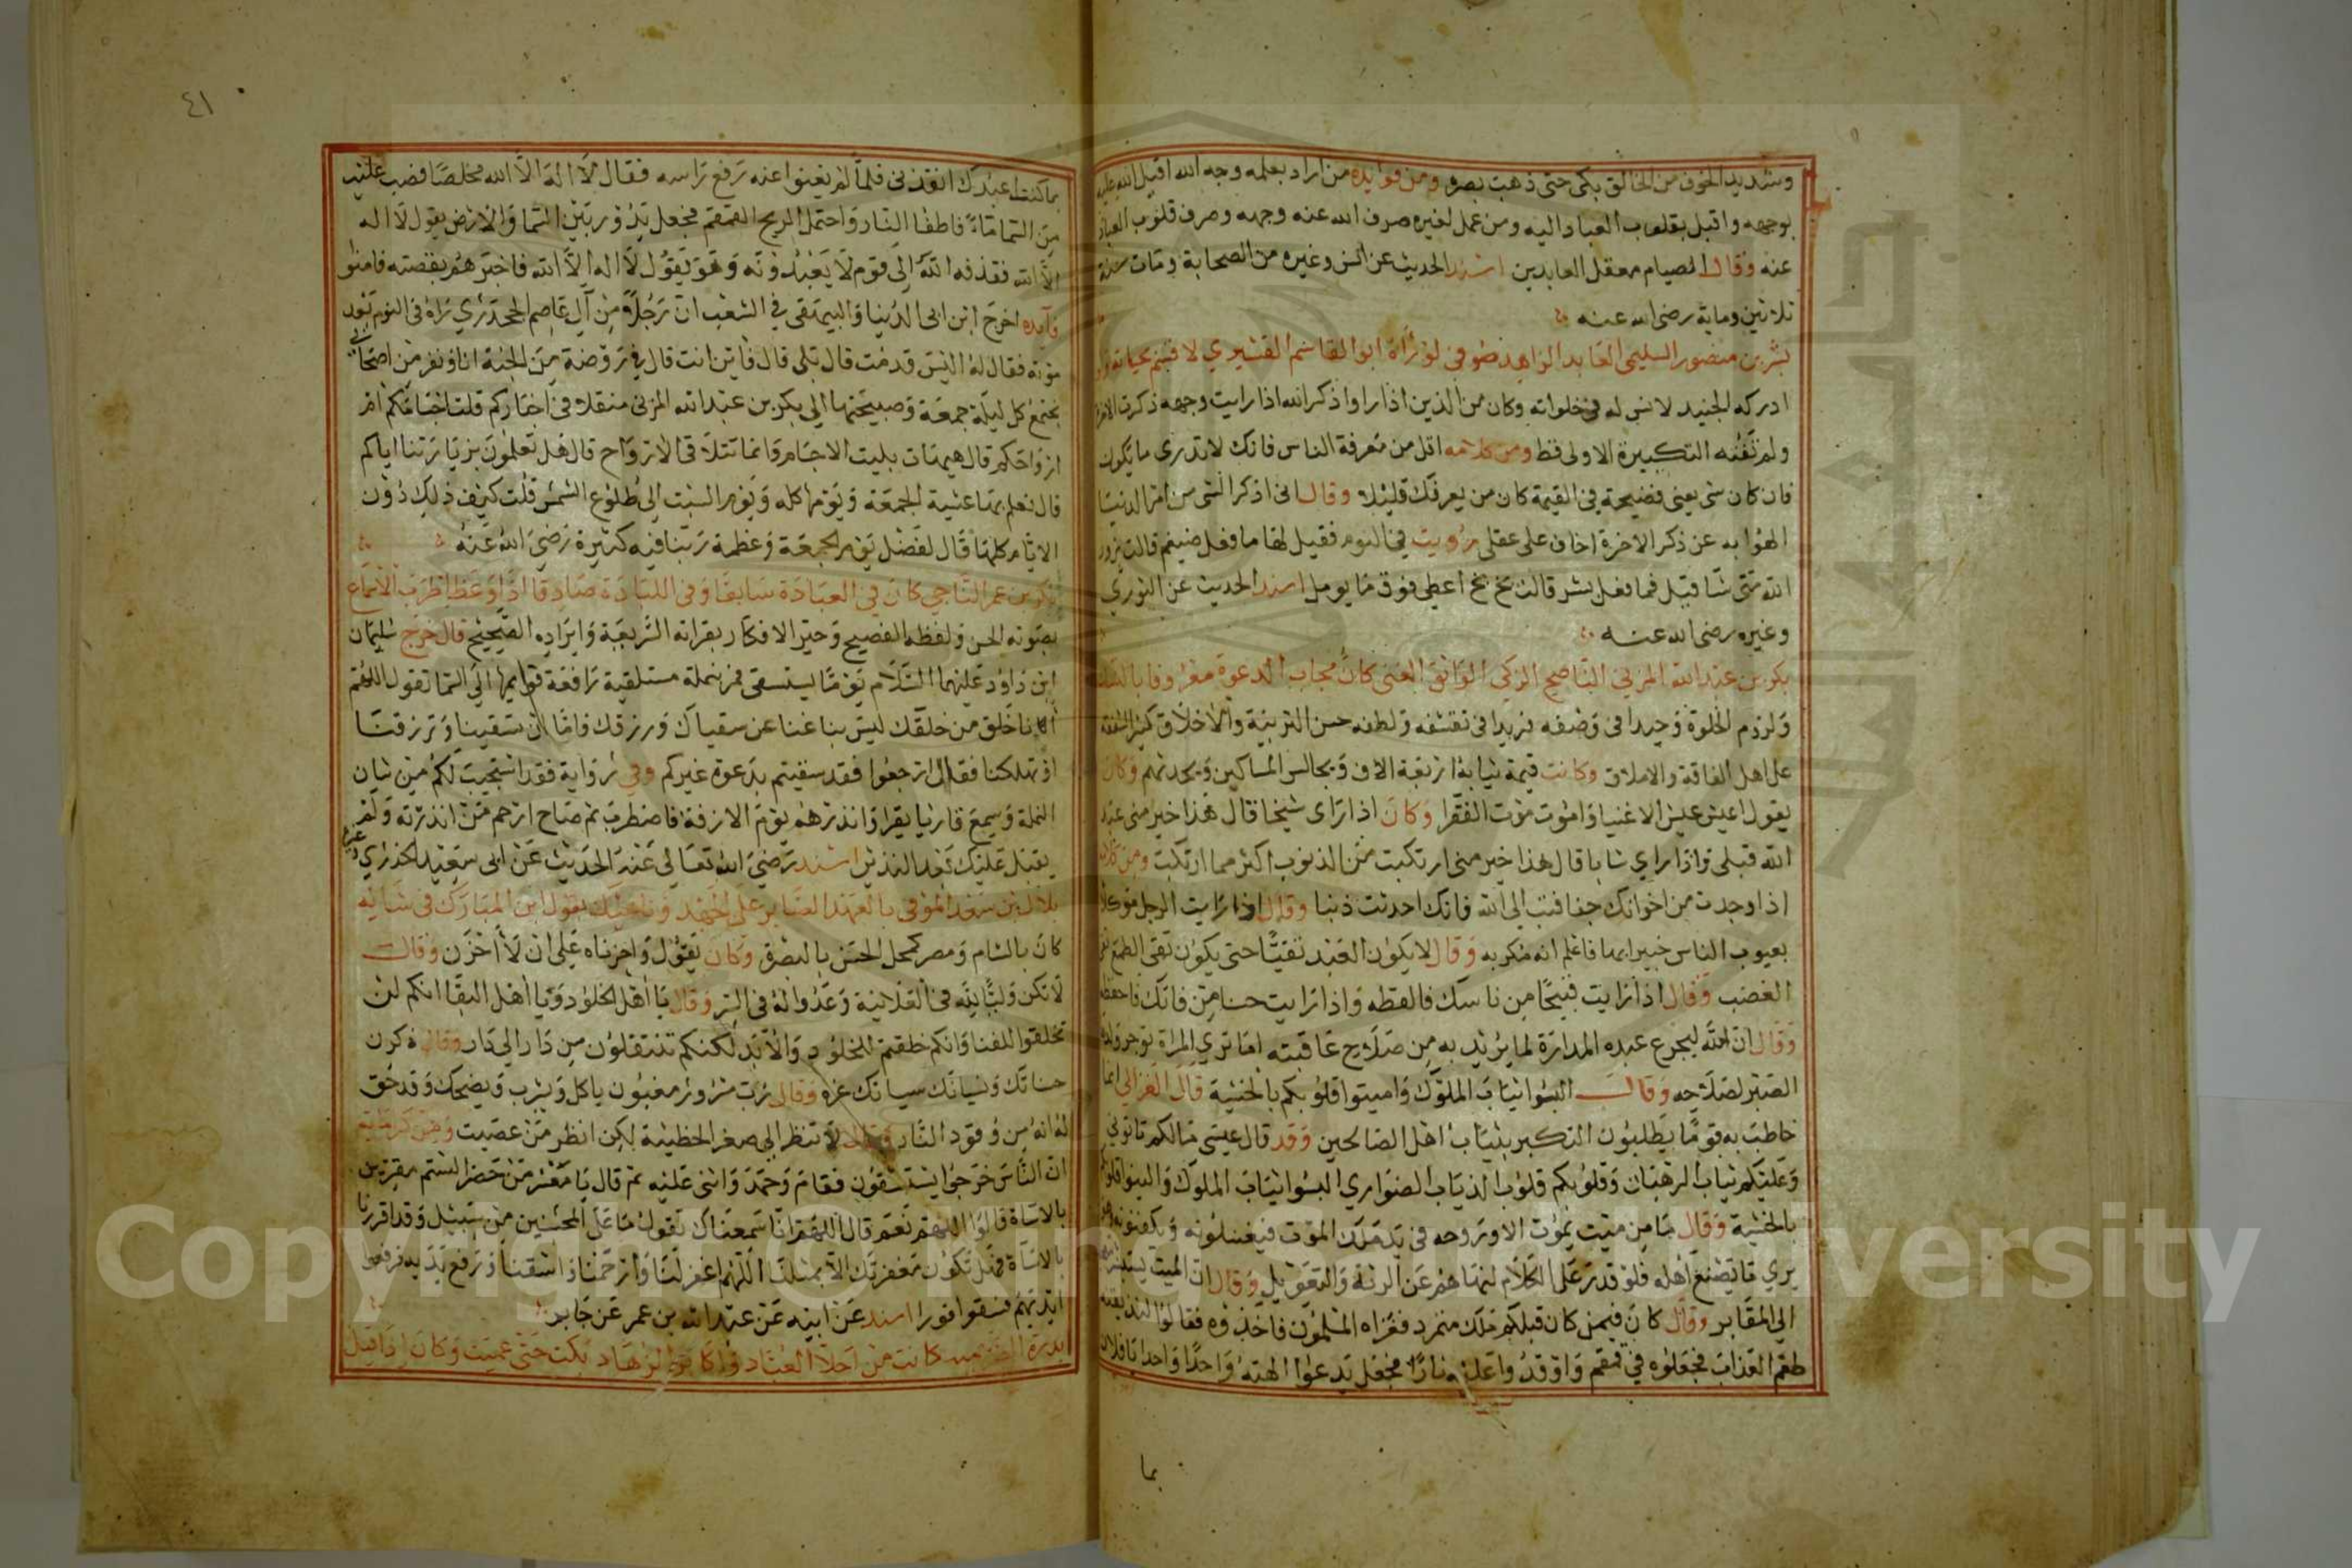 وشديد الخوف من الخالق بكى حتى ذهبت بصره ومن فوايده من اراد بعلمه وجه الله اقبل الله عليه
بوجهه واقبل بقلوب العباد اليه ومن عمل لغيره صرف الله عنه وجهه وصرف قلوب العباد
عنه وقال الصيام معقل العابدين اسند الحديث عن انس وغيره من الصحابة ومات سنة
ثلاثين وماية رضى الله عنه
بشر بن منصور السليمى العابد الزاهد لو رآه ابو القاسم القشيري
ادركه الجنيد لانس له في خلواته وكان من الذين اذا راوا ذكر الله اذا رايت وجهه ذكرت الاخرة
ولم تفته التكبيرة الاولى قط ومن كلامه اقل من معرفة الناس فانك لا تدرى ما يكون
فان كان شى يعنى فضيحة في القيمة كان من يعرفك قليلا وقال انى اذكر الشى من امر الدنيا
الهوا به عن ذكر الاخرة اخاف على عقلى رؤيت في النوم فقيل لها ما فعل ضيغم قالت يزور
الله متى شا قيل فما فعل بشر قالت بخ بخ اعطى فوق ما يومل اسند الحديث عن الثوري
وغيره رضى الله عنه
بكر بن عبد الله المزنى الناصح الزكى الواثق الغنى كان مجاب الدعوة معروفا
ولزم الخلوة وحيدا فى وصفه فريدا فى تقشفه ولطفه حسن التربية والاخلاق كثير الشفقة
على اهل الفاقة والاملاق وكانت قيمة ثيابه اربعة الاف ويجالس المساكين ويحدثهم وكان
يقول اعيش عيش الاغنيا واموت موت الفقرا وكان اذا راى شيخا قال هذا خير منى عبد
الله قبلى واذا راي شابا قال هذا خير منى ارتكبت من الذنوب اكثر مما ارتكبت ومن كلامه
اذا وجدت من اخوانك جفا فتب الى الله فانك احدثت ذنبا وقال اذا رايت الرجل موكلا
بعيوب الناس خبيرا بها فاعلم انه مكر به وقال لا يكون العبد تقيا حتى يكون تقى الطمع تقى
الغضب وقال اذا رايت قبيحا من ناسك فالفظه واذا رايت حسنا من فاتك فاحفظه
وقال ان الله ليجرع عبده المرارة لما يريد به من صلاح عاقبته اما تري المراة توجر ولدها
الصبر لصلاحه وقال البسوا ثياب الملوك واميتوا قلوبكم بالخشية قال الغزالي انما
خاطب به قوما يطلبون التكبر بثياب اهل الصالحين وقد قال عيسى مالكم تاتونى
وعليكم ثياب الرهبان وقلوبكم قلوب الذياب الضواري البسوا ثياب الملوك والينوا قلوبكم
بالخشية وقال ما من ميت يموت الا وروحه في يد ملك الموت فيغسلونه ويكفنونه وهو
يري ما يصنع اهله فلو قدر على الكلام لنهاهم عن الرنة والعويل وقال ان الميت
الى المقابر وقال كان فيمن كان قبلكم ملك متمرد فغزاه المسلمون فاخذوه فقالوا لنذيقنه
طعم العذاب فجعلوه في قمقم واوقدوا عليه نارا فجعل يدعوا الهته واحدا واحدا يا فلان
بما
٤١
بما كنت اعبدك انقذنى فلما لم يغنوا عنه رفع راسه فقال لا اله الا الله مخلصا فصب عليه
من السما ماء فاطفا النار واحتمل الريح القمقم فجعل يدور بين السما والارض يقول لا اله
الا الله فقذفه الله الى قوم لا يعبدونه وهو يقول لا اله الا الله فاخبرهم بقصته فامنوا
فايده اخرج ابن ابى الدنيا والبيهقى في الشعب ان رجلا من آل عاصم الجحدري رآه فى النوم بعد
موته فقال له اليس قد مت قال بلى قال فاين انت قال في روضة من الجنة انا ونفر من اصحابي
نجتمع كل ليلة جمعة وصبيحتها الى بكر بن عبد الله المزنى فنتلاقى اخباركم قلت اجسامكم ام
ارواحكم قال هيهات بليت الاجسام وانما تتلاقى الارواح قال هل تعلمون بزيارتنا اياكم
قال نعلم بها عشية الجمعة ويومها كله ويوم السبت الى طلوع الشمس قلت كيف ذلك دون
الايام كلها قال لفضل يوم الجمعة وعظمة ربنا فيه كثيرة رضى الله عنه
بكر بن عمر الناجي كان في العبادة سابقا وفى اللبادة صادقا اذا وعظ اطرب الاسماع
بصوته الحسن ولفظه الفصيح وحير الافكار بقراته الشريفة وايراده الصحيح قال خرج سليمان
ابن داود عليهما السلام يوما يستسقى فمر بنملة مستلقية رافعة قوايمها الى السما تقول اللهم
انا خلق من خلقك ليس بنا غنا عن سقياك ورزقك فاما ان تسقينا وترزقنا
او تهلكنا فقال ارجعوا فقد سقيتم بدعوة غيركم وفي رواية فقد استجيب لكم من شان
النملة وسمع قاريا يقرا وانذرهم يوم الازفة فاضطرب ثم صاح ارحم من انذرته ولم
يقبل عليك بعد النذير اسند رضى الله تعالى عنه الحديث عن ابى سعيد الخدري وغيره
بلال بن سعد الموفى بالعهد الصابر على الجهد وناهيك بقول ابن المبارك فى شانه
كان بالشام ومصر كمحل الحسن بالبصرة وكان يقول واحزناه على ان لا احزن وقال
لا تكن وليا لله فى العلانية وعدوا له فى السر وقال يا اهل الخلود ويا اهل البقا انكم لن
تخلقوا للفنا وانكم خلقتم للخلود والابد لكنكم تنتقلون من دار الى دار وقال ذكرك
حسناتك ونسيانك سياتك غره وقال رب مسرور مغبون ياكل ويشرب ويضحك وقد حق
له انه من وقود النار وقال لا تنظر الى صغر الخطيئة لكن انظر من عصيت
ان الناس خرجوا يستسقون فقام وحمد واثنى عليه ثم قال يا معشر من حضر الستم مقرين
بالاساة قالوا اللهم نعم قال اللهم انا سمعناك تقول ما على المحسنين من سبيل وقد اقررنا
بالاساة فهل تكون مغفرتك الا بمثلنا اللهم اغفر لنا وارحمنا واسقنا ورفع يديه فرفعوا
ايديهم فسقوا فورا اسند عن ابيه عن عبد الله بن عمر عن جابر
كانت من اجلا العباد واكابر الزهاد بكت حتى عميت وكان اذا قيل
Copyright © King Saud University